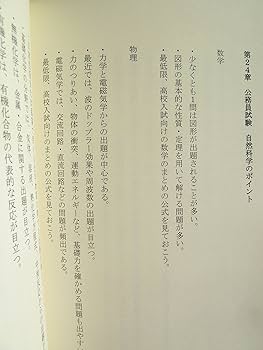 第２４章　公務員試験　自然科学のポイント
数学
・少なくとも１問は図形が出題されることが多い。
・図形の基本的な性質・定理を用いて解ける問題が多い。
・最低限、高校入試向けの数学のまとめの公式を見ておこう。
物理
・力学と電磁気学からの出題が中心である。
・最近では、波のドップラー効果や周波数の出題が目立つ。
・力のつりあい、物体の衝突、運動エネルギーなど、基礎力を確かめる問題も出やす
・電磁気学では、交流回路・直流回路などの問題が頻出である。
・最低限、高校入試向けのまとめの公式を見ておこう。
金属・合金に関する出題が目立つ。
有機化学は、有機化合物の代表的な反応が目立つ。